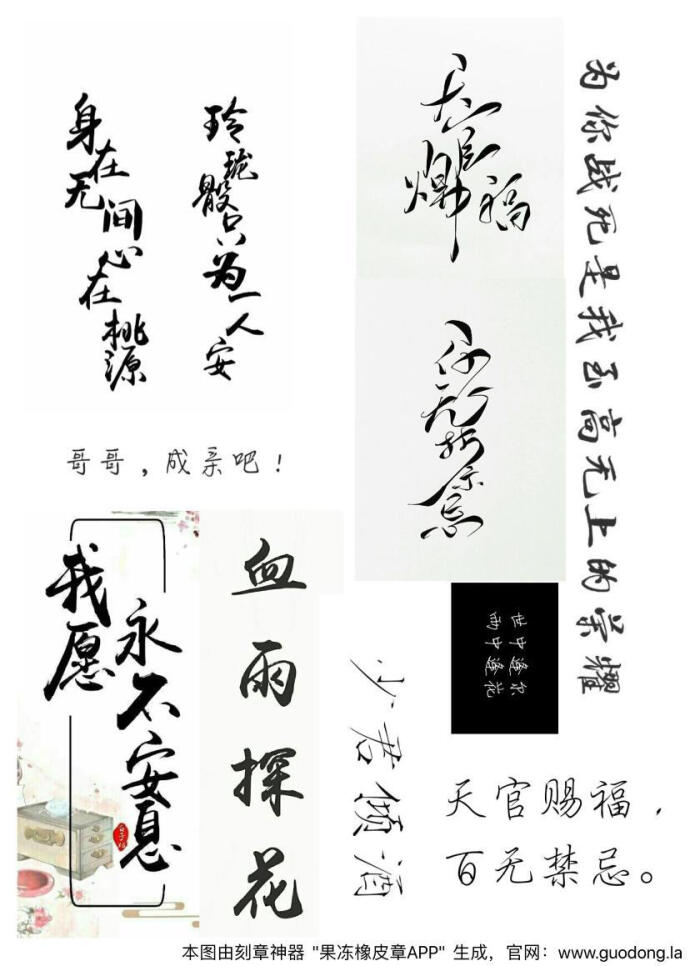 身在无间心在桃源
玲珑骰只为一人安
天官赐福
百无禁忌
为你战死是我至高无上的荣耀
哥哥，成亲吧！
我愿
永不安息
血雨探花
世中逢尔
雨中逢花
少君倾酒
天官赐福，
百无禁忌。
本图由刻章神器 "果冻橡皮章APP" 生成，官网：www.guodong.la